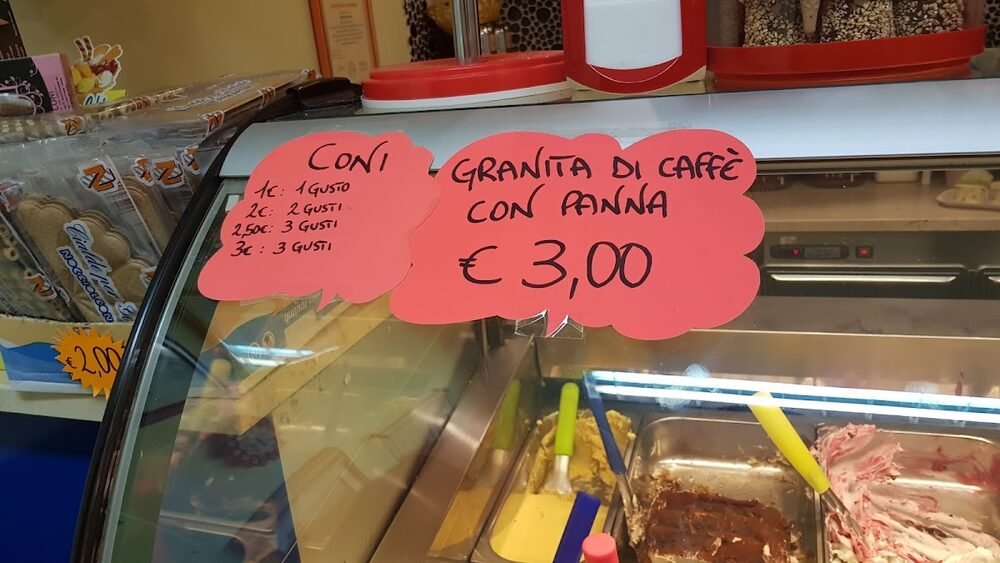 CONI
1€: 1 GUSTO
2€: 2 GUSTI
2,50€: 3 GUSTI
3€: 3 GUSTI
GRANITA DI CAFFÈ
CON PANNA
€ 3,00
€ 2,00